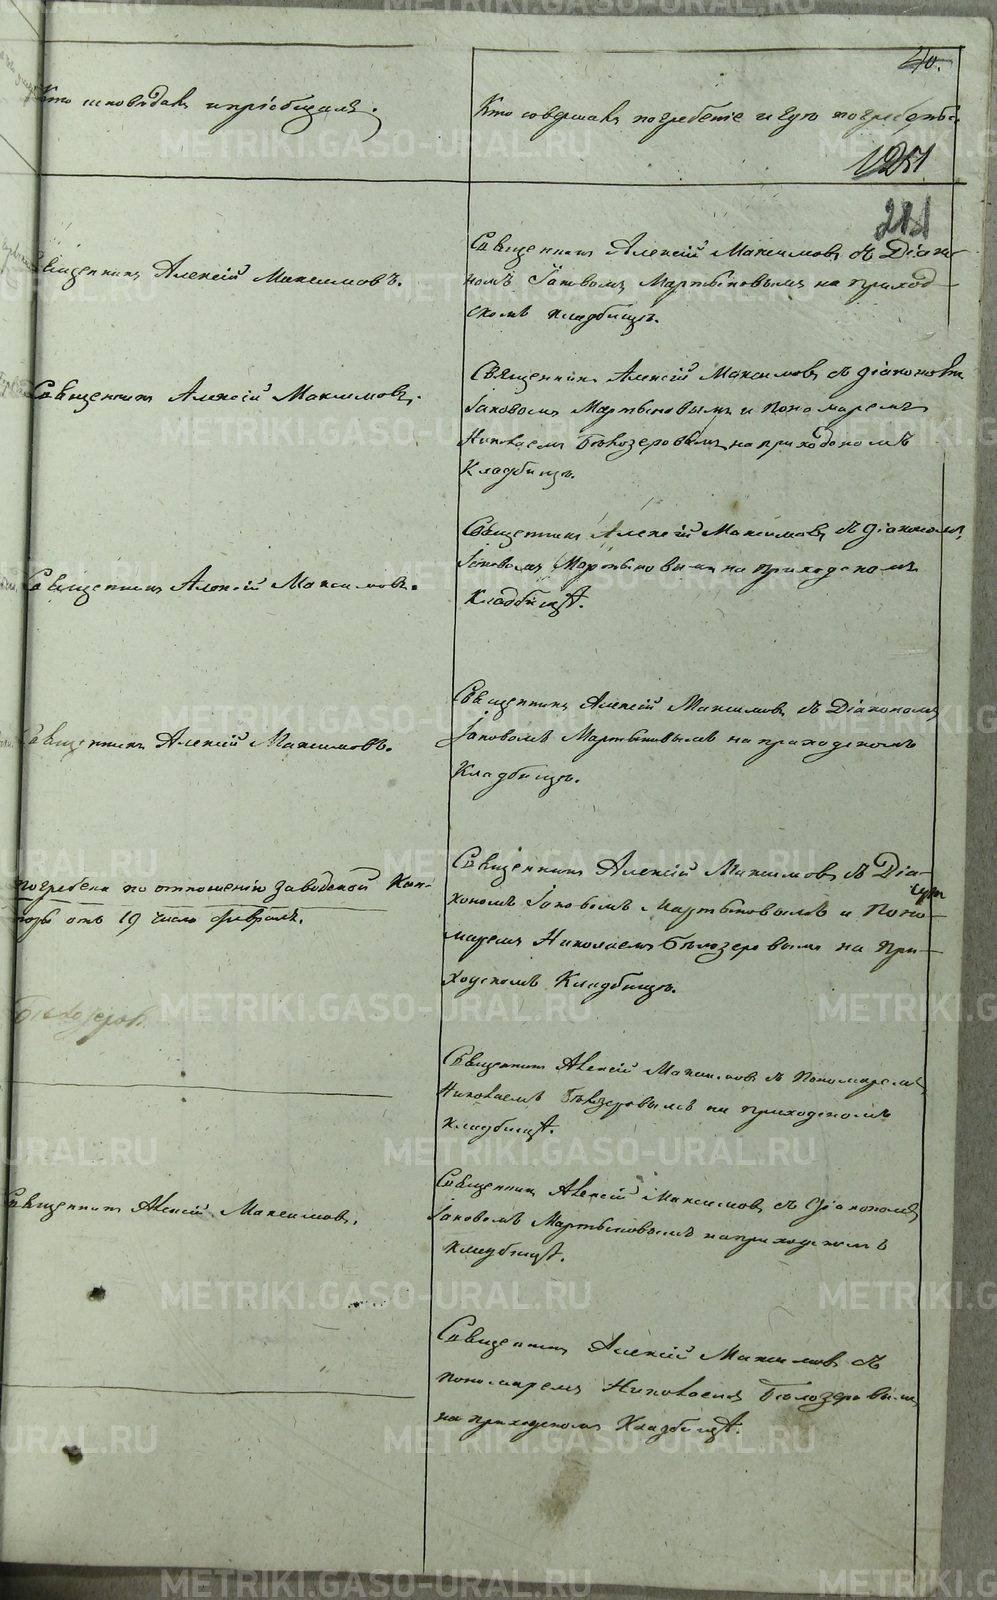 40.
Кто исповѣдалъ и пріобщалъ.
Кто совершалъ погребеніе и гдѣ погребены.
1251
211
Священникъ Алексій Максимовъ.
Священникъ Алексій Максимовъ съ Діако-
номъ Іаковомъ Мартыновымъ на приход-
скомъ кладбищѣ.
Священникъ Алексій Максимовъ.
Священникъ Алексій Максимовъ съ діакономъ
Іаковомъ Мартыновымъ и Пономаремъ
Николаемъ Бѣлозеровымъ на приходскомъ
Кладбищѣ.
Священникъ Алексій Максимовъ.
Священникъ Алексій Максимовъ съ діакономъ
Іаковомъ Мартыновымъ на приходскомъ
Кладбищѣ.
Священникъ Алексій Максимовъ.
Священникъ Алексій Максимовъ съ Діакономъ
Іаковомъ Мартыновымъ на приходскомъ
Кладбищѣ.
погребенъ по отношенію Заводской Кон-
торы отъ 19 числа февраля.
Священникъ Алексій Максимовъ съ Діа-
кономъ Іаковомъ Мартыновымъ и Поно-
маремъ Николаемъ Бѣлозеровымъ на При-
ходскомъ Кладбищѣ.
Бѣлозеровъ
Священникъ Алексій Максимовъ съ Пономаремъ
Николаемъ Бѣлозеровымъ на приходскомъ
кладбищѣ.
Священникъ Алексій Максимовъ.
Священникъ Алексій Максимовъ съ Діакономъ
Іаковомъ Мартыновымъ на приходскомъ
кладбищѣ.
Священникъ Алексій Максимовъ съ
пономаремъ Николаемъ Бѣлозеровымъ
на приходскомъ Кладбищѣ.
METRIKI.GASO-URAL.RU